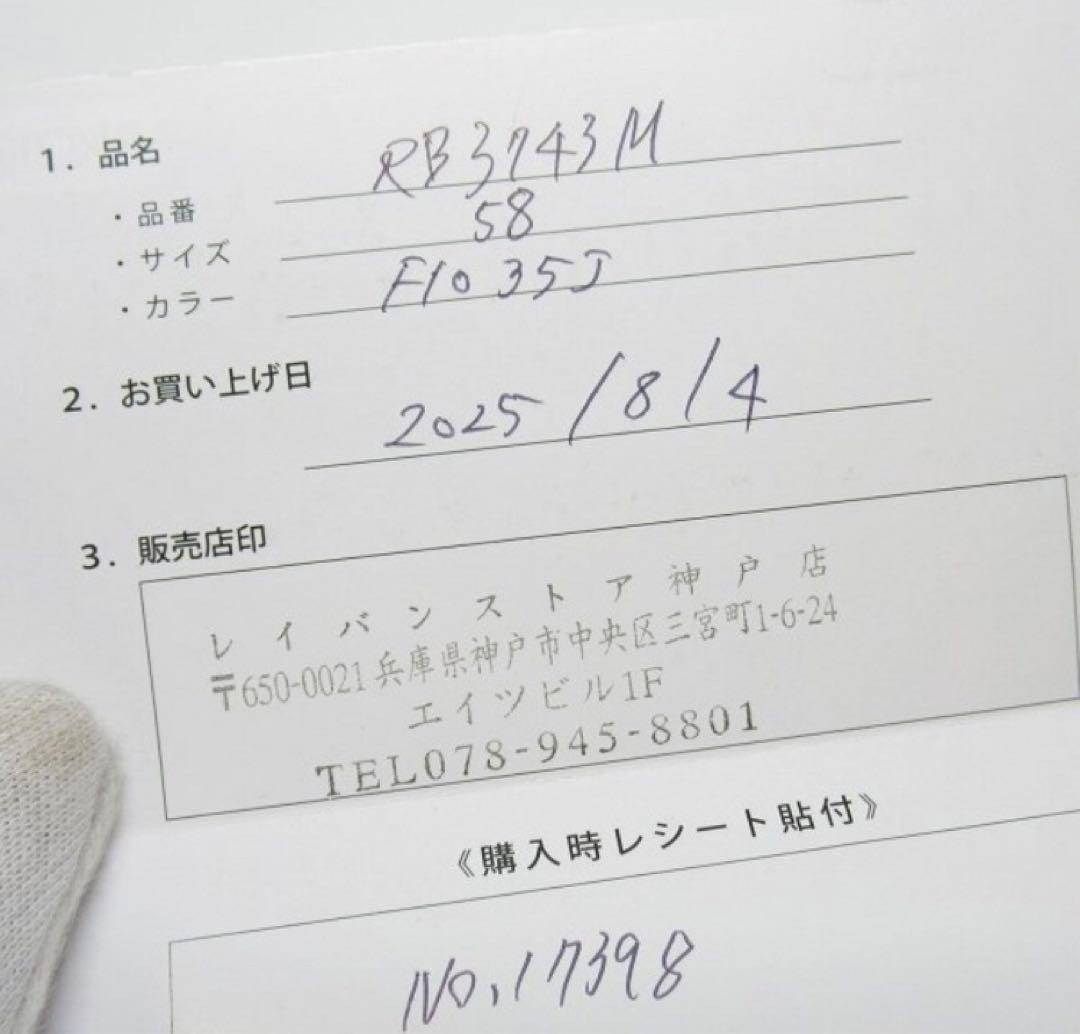 1. 品名
RB3743M
・品番
58
・サイズ
F1035J
・カラー
2. お買い上げ日
2025/8/4
3. 販売店印
レイバンストア神戸店
〒650-0021 兵庫県神戸市中央区三宮町1-6-24
エイツビル1F
TEL078-945-8801
《購入時レシート貼付》
No.17398